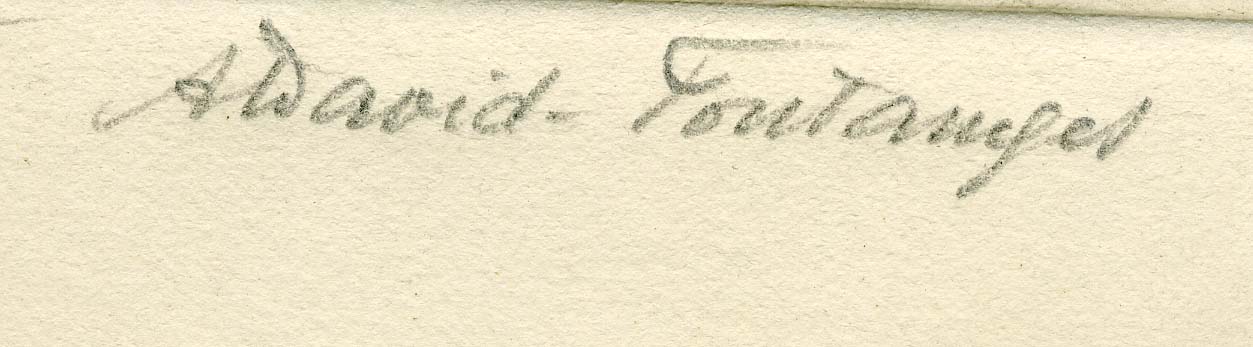 A David-Fontanges